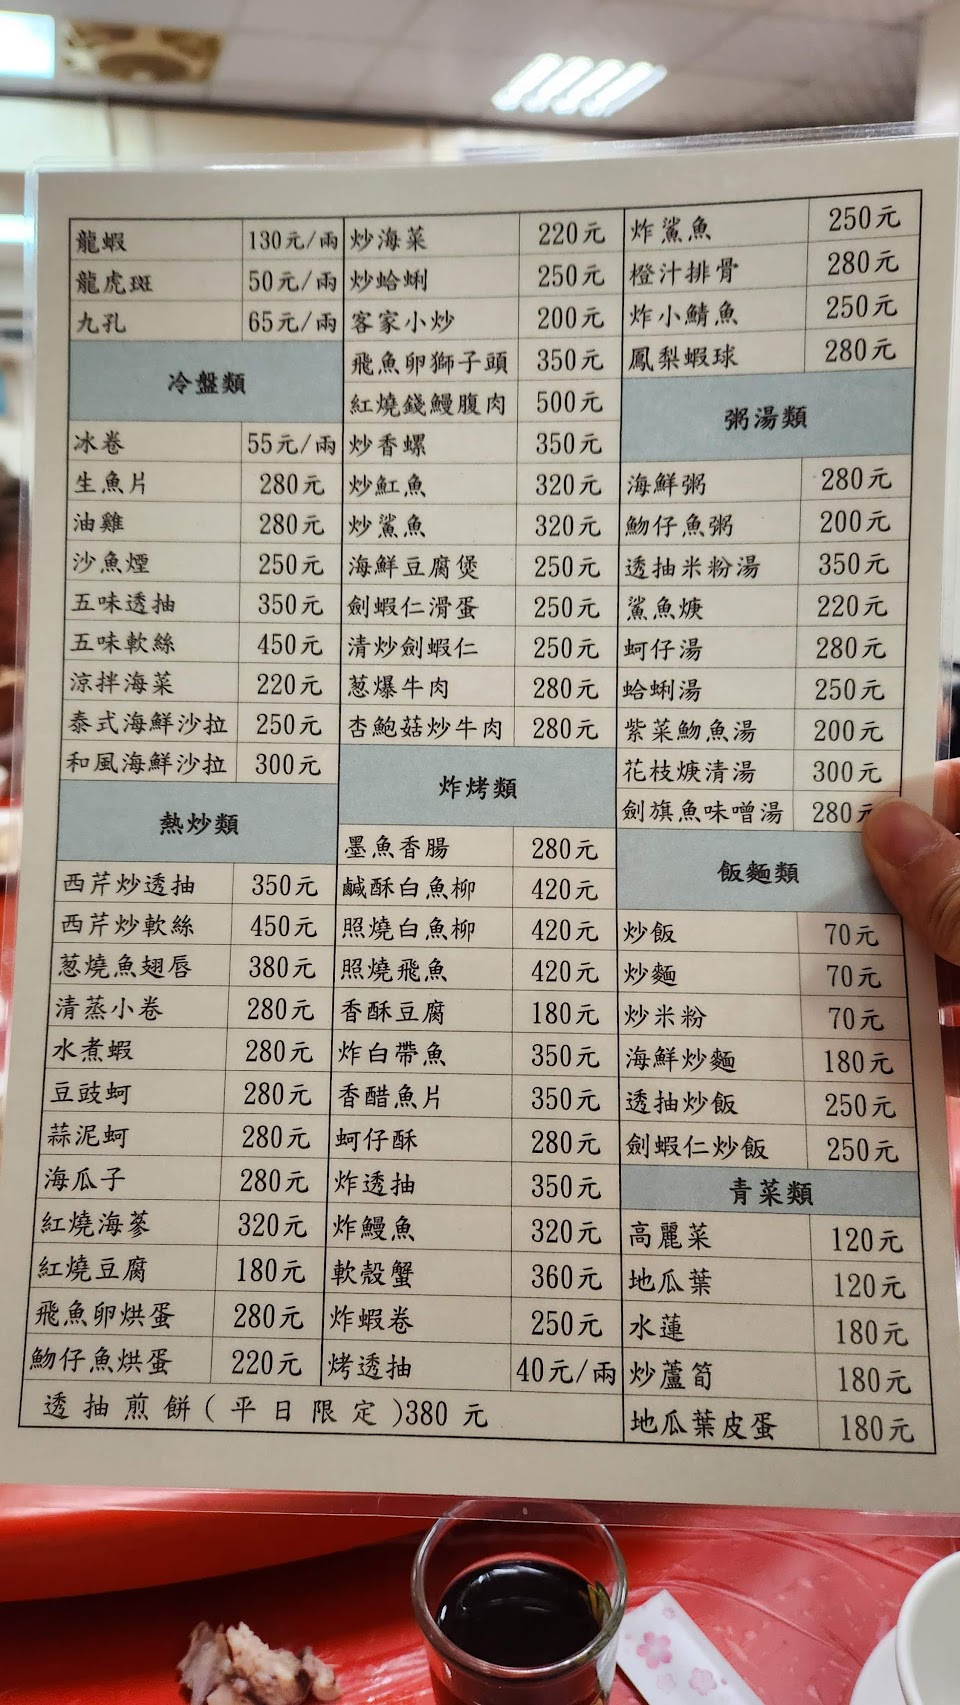 龍蝦 130元/兩
龍虎斑 50元/兩
九孔 65元/兩
冷盤類
冰卷 55元/兩
生魚片 280元
油雞 280元
沙魚煙 250元
五味透抽 350元
五味軟絲 450元
涼拌海菜 220元
泰式海鮮沙拉 250元
和風海鮮沙拉 300元
熱炒類
西芹炒透抽 350元
西芹炒軟絲 450元
蔥燒魚翅唇 380元
清蒸小卷 280元
水煮蝦 280元
豆豉蚵 280元
蒜泥蚵 280元
海瓜子 280元
紅燒海蔘 320元
紅燒豆腐 180元
飛魚卵烘蛋 280元
魩仔魚烘蛋 220元
透抽煎餅(平日限定)380元
炒海菜 220元
炒蛤蜊 250元
客家小炒 200元
飛魚卵獅子頭 350元
紅燒錢鰻腹肉 500元
炒香螺 350元
炒魟魚 320元
炒鯊魚 320元
海鮮豆腐煲 250元
劍蝦仁滑蛋 250元
清炒劍蝦仁 250元
蔥爆牛肉 280元
杏鮑菇炒牛肉 280元
炸烤類
墨魚香腸 280元
鹹酥白魚柳 420元
照燒白魚柳 420元
照燒飛魚 420元
香酥豆腐 180元
炸白帶魚 350元
香醋魚片 350元
蚵仔酥 280元
炸透抽 350元
炸鰻魚 320元
軟殼蟹 360元
炸蝦卷 250元
烤透抽 40元/兩
炸鯊魚 250元
橙汁排骨 280元
炸小鯖魚 250元
鳳梨蝦球 280元
粥湯類
海鮮粥 280元
魩仔魚粥 200元
透抽米粉湯 350元
鯊魚焿 220元
蚵仔湯 280元
蛤蜊湯 250元
紫菜魩魚湯 200元
花枝焿清湯 300元
劍旗魚味噌湯 280元
飯麵類
炒飯 70元
炒麵 70元
炒米粉 70元
海鮮炒麵 180元
透抽炒飯 250元
劍蝦仁炒飯 250元
青菜類
高麗菜 120元
地瓜葉 120元
水蓮 180元
炒蘆筍 180元
地瓜葉皮蛋 180元